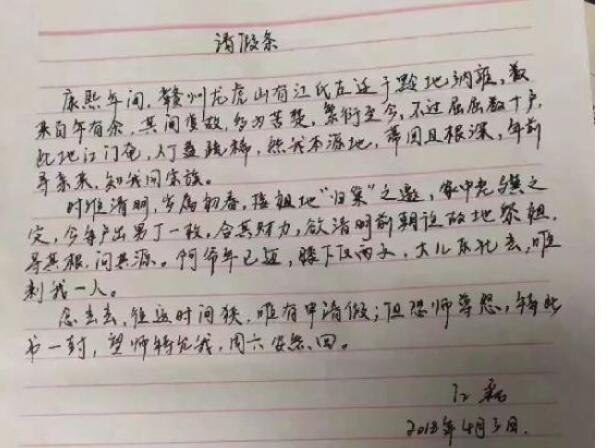 请假条
康熙年间，赣州龙虎山有江氏左迁于黔地纳雍，数
来百年有余，其间变故，多为苦楚，繁衍至今，不过屈屈数十户，
此地江门奄，人丁益疏稀，然我本源地，蒂固且根深，年前
寻亲来，知我同宗族。
时惟清明，岁属初春，接祖地“归集”之邀，家中老与其之
定，今每户出男丁一枚，合其财力，欲清明前朝近故地祭祖，
寻其根，问其源。阿爷年已迈，膝下且两子，大儿东北去，唯
剩我一人。
念去去，往返时间狭，唯有申请假；但恐师尊怨，特此
书一封，望师特允我，周六安然回。
江磊
2018年4月3日.